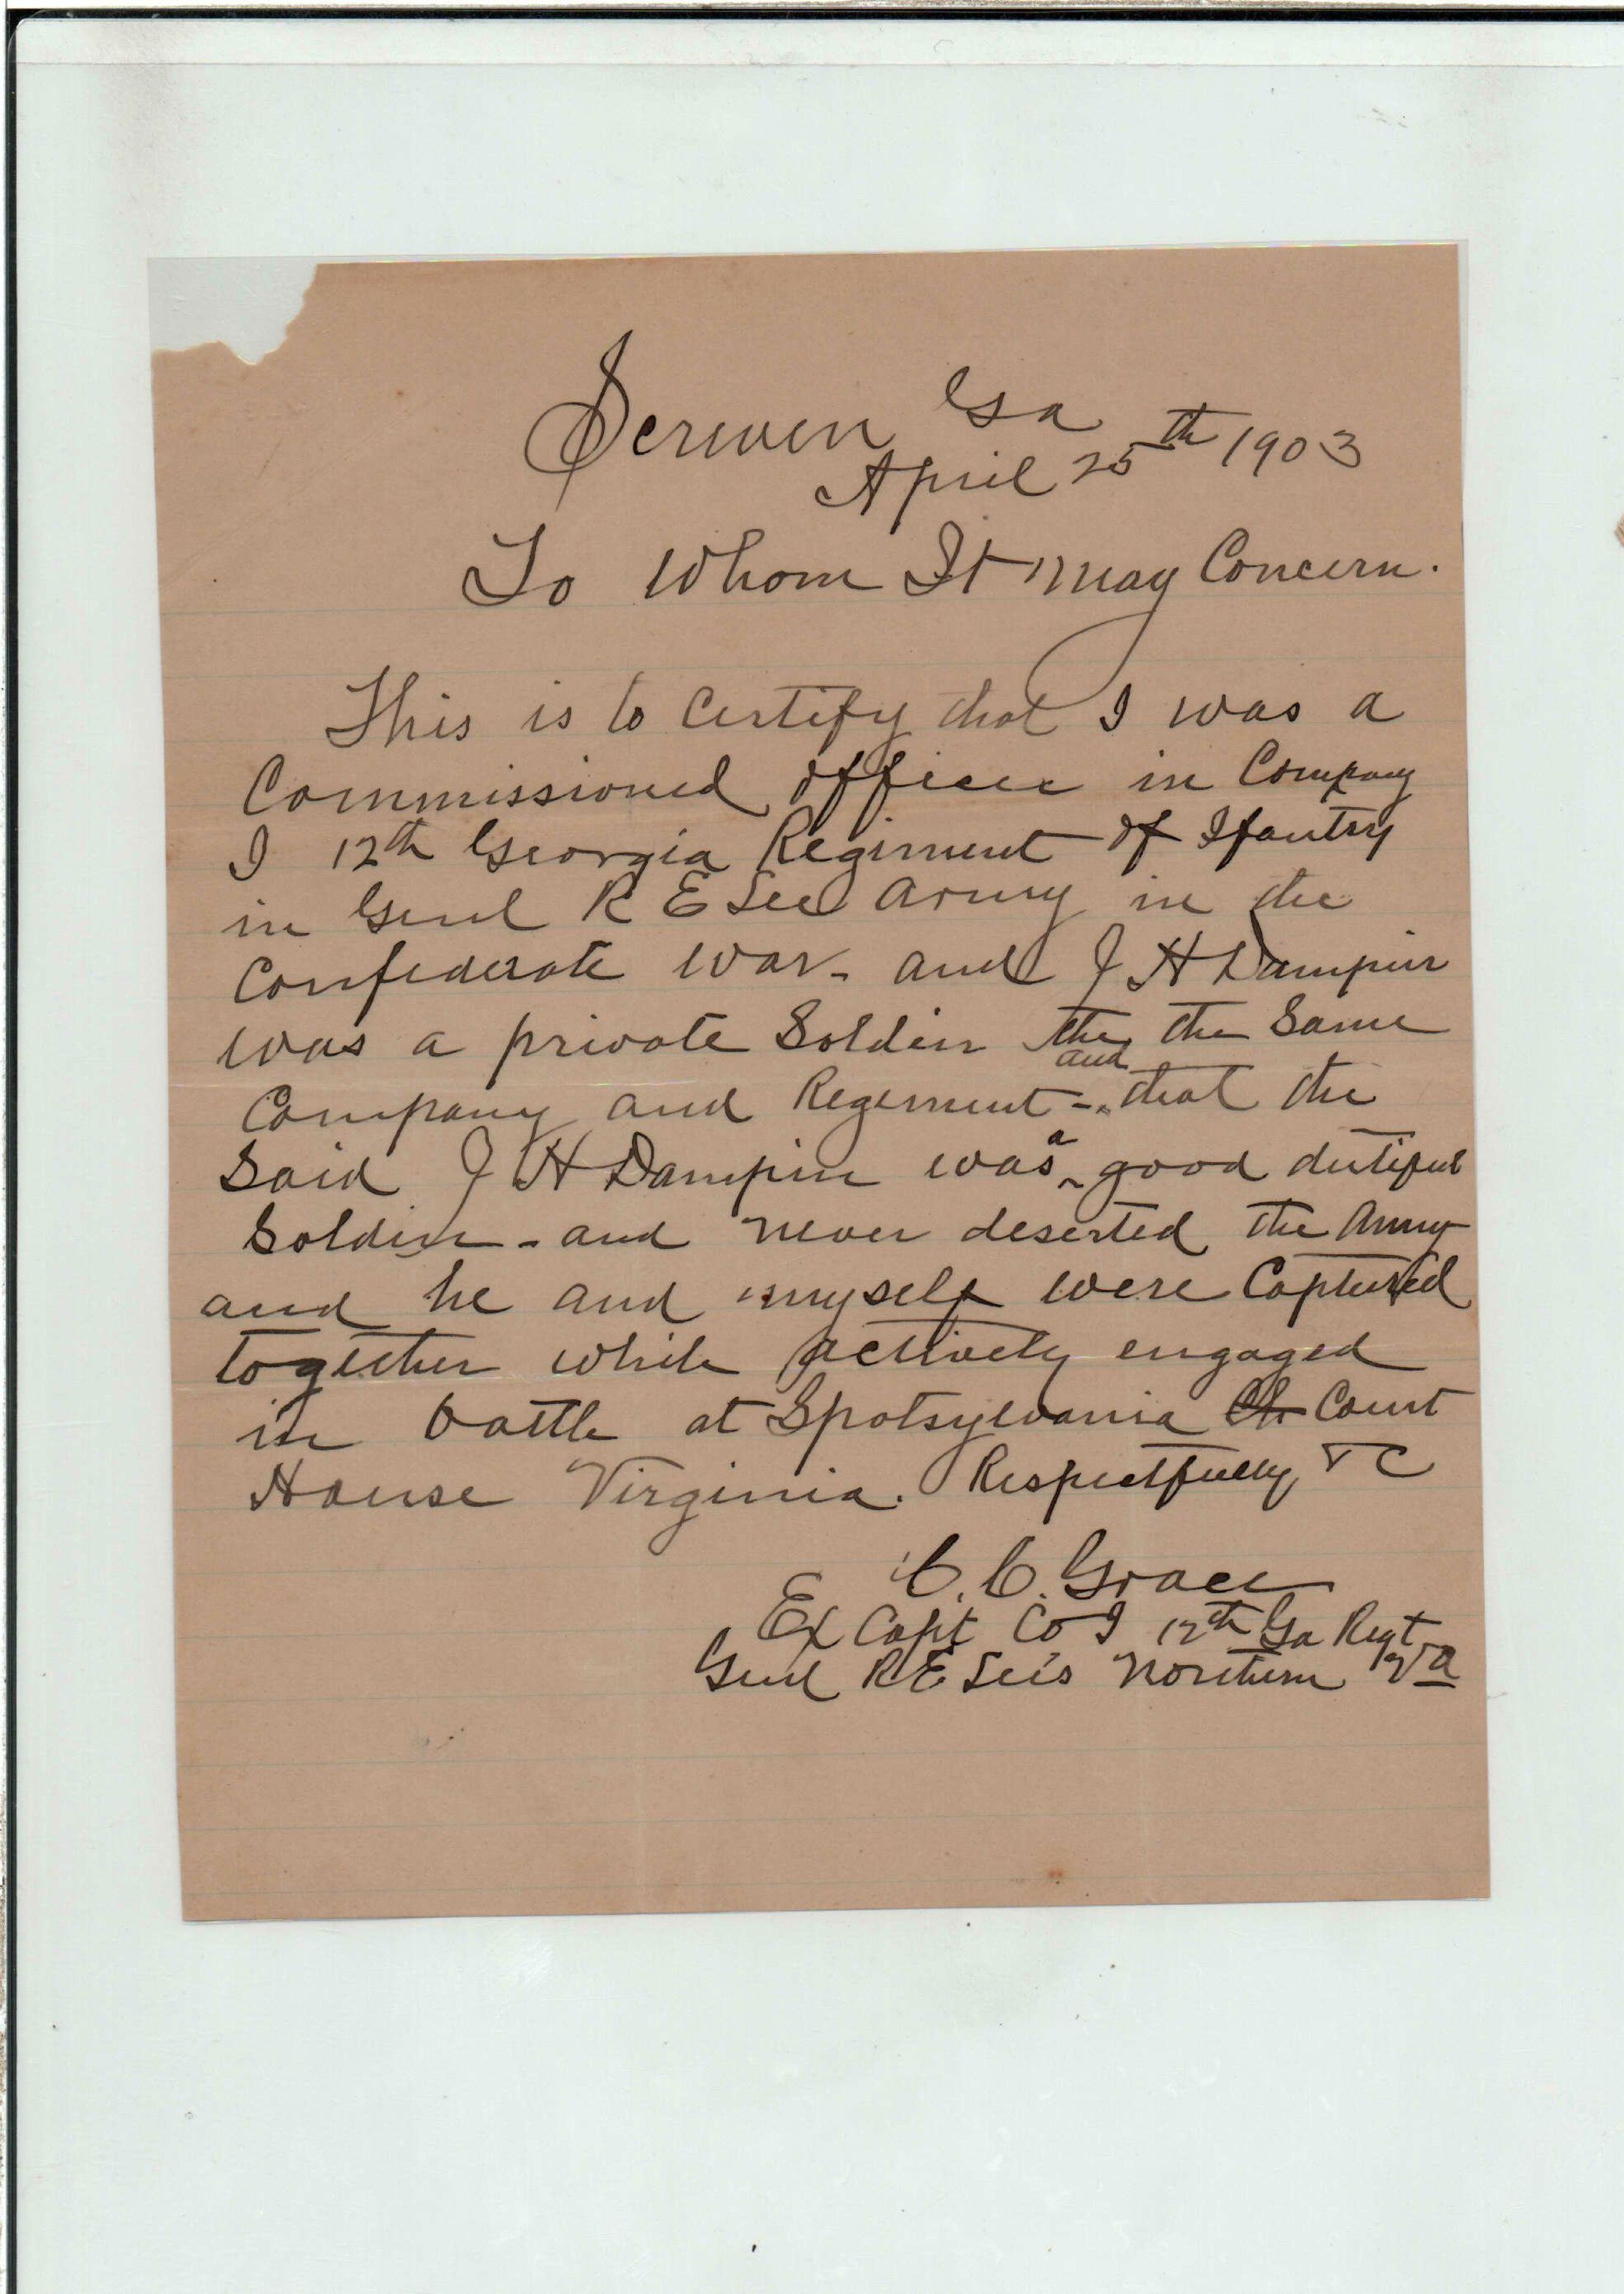 Screven Ga
April 25th 1903
To Whom It May Concern.
This is to Certify that I was a
Commissioned officer in Company
I 12th Georgia Regiment of Ifantry
in Genl R E Lee Army in the
Confederate War - and J H Dampier
was a private Soldier the the Same
Company and Regiment - and that the
Said J H Dampier was a good dutiful
Soldier - and never deserted the Army
and he and myself were Captured
together while actively engaged
in battle at Spotsylvania Ch Court
House Virginia. Respectfully &C
C. C. Grace
Ex Capt Co I 12th Ga Regt
Genl R E Lee's Northern Va